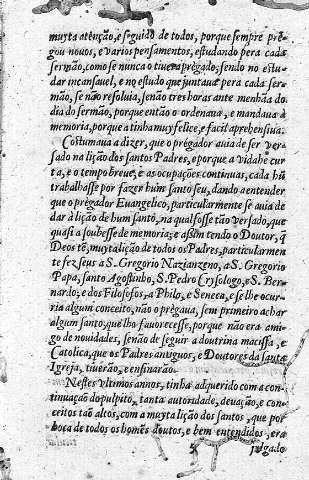 muyta atenção, e seguido de todos, porque sempre prè-
gou nouos, e varios pensamentos, estudando pera cada
sermão, como se nunca o tiuera prègado; sendo no estu-
dar incansauel, e no estudo que juntaua pera cada ser-
mão, se não resoluia, senão tres horas ante menhãa do
dia do sermão, porque então o ordenaua, e mandaua à
memoria, porque a tinha muy felice, e facil aprehensiua.
Costumaua a dizer, que o prègador auia de ser ver-
sado na lição dos santos Padres, e porque a vida he cur
ta, e o tempo breue, e as ocupações continuas, cada hũ
trabalhasse por fazer hum santo seu, dando a entender
que o prègador Euangelico, particularmente se auia de
dar à lição de hum santo, na qual fosse tão versado, que
quasi a soubesse de memoria; e assim tendo o Doutor, q̃
Deos tẽ, muyta lição de todos os Padres, particularmen
te fez seus a S. Gregorio Nazianzeno, a S. Gregorio
Papa, santo Agostinho, S. Pedro Crysologo, e S. Ber-
nardo; e dos Filosofos, a Philo, e Seneca, e se lhe ocur-
ria algum conceito, não o prègaua, sem primeiro achar
algum santo, que lho fauorecesse, porque não era ami-
go de nouidades, senão de seguir a doutrina macissa, e
Catolica, que os Padres antiguos, e Doutores da santa
Igreja, tiuerão, e ensinarão.
Nestes vltimos annos, tinha adquerido com a con-
tinuação do pulpito, tanta autoridade, deuação, e con-
ceitos tão altos, com a muyta lição dos santos, que por
boca de todos os homẽs doutos, e bem entendidos, era
julgado